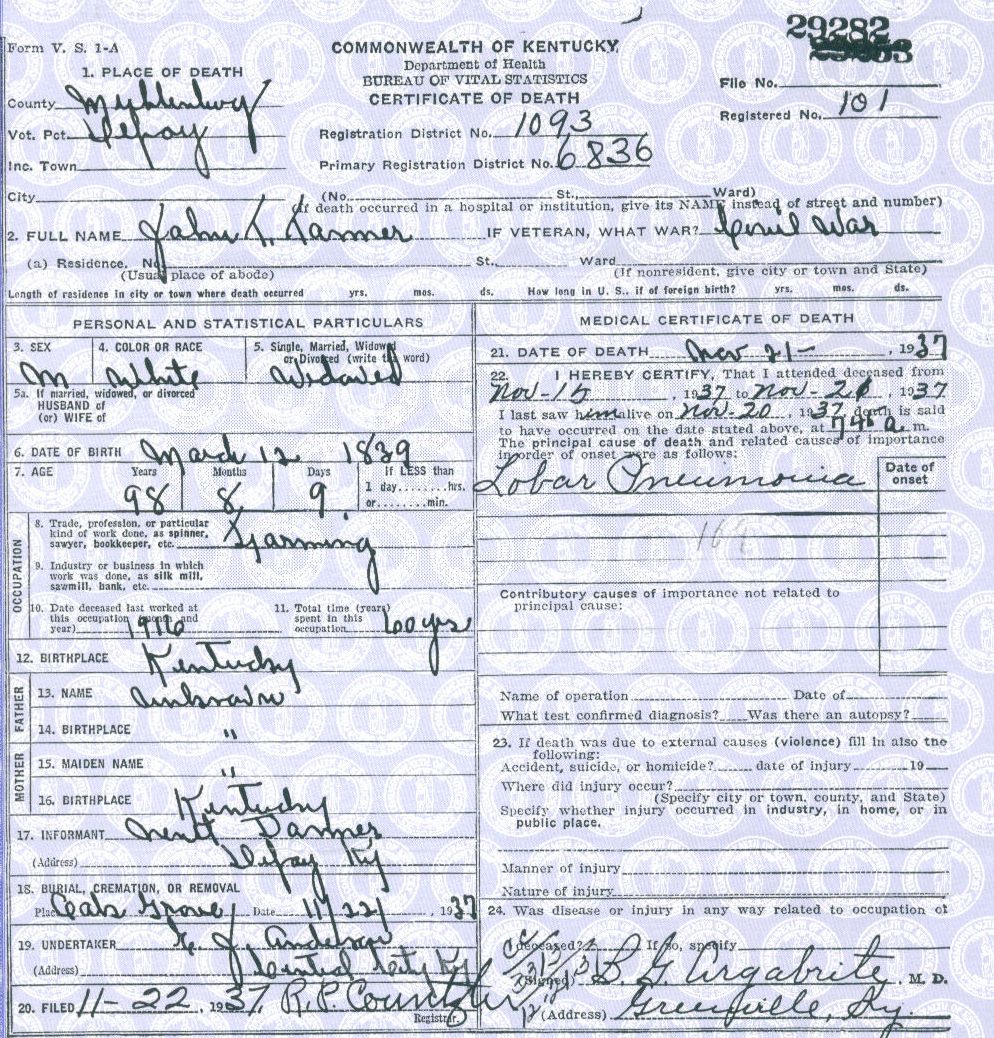 29282
Form V. S. 1-A
COMMONWEALTH OF KENTUCKY
Department of Health
BUREAU OF VITAL STATISTICS
CERTIFICATE OF DEATH
File No.
Registered No. 101
1. PLACE OF DEATH
County Muhlenburg
Vot. Pct. Depoy
Inc. Town
Registration District No. 1093
Primary Registration District No. 6836
City (No. St., Ward)
(If death occurred in a hospital or institution, give its NAME instead of street and number)
2. FULL NAME John IF VETERAN, WHAT WAR? Civil War
(a) Residence, No. St., Ward
(Usual place of abode) (If nonresident, give city or town and State)
Length of residence in city or town where death occurred yrs. mos. ds. How long in U. S., if of foreign birth? yrs. mos. ds.
PERSONAL AND STATISTICAL PARTICULARS
3. SEX 4. COLOR OR RACE 5. Single, Married, Widowed
or Divorced (write the word)
M White Widowed
5a. If married, widowed, or divorced
HUSBAND of
(or) WIFE of
6. DATE OF BIRTH March 12 1839
7. AGE Years Months Days If LESS than
1 day........hrs.
98 8 9 or........min.
OCCUPATION
8. Trade, profession, or particular
kind of work done, as spinner,
sawyer, bookkeeper, etc. Farming
9. Industry or business in which
work was done, as silk mill,
sawmill, bank, etc.
10. Date deceased last worked at
this occupation (month and
year) 1916
11. Total time (years)
spent in this
occupation 60 yrs
12. BIRTHPLACE Kentucky
FATHER
13. NAME Unknown
14. BIRTHPLACE "
MOTHER
15. MAIDEN NAME "
16. BIRTHPLACE Kentucky
17. INFORMANT
(Address) Depoy Ky
18. BURIAL, CREMATION, OR REMOVAL
Place Oak Grove Date 11/22/, 1937
19. UNDERTAKER J. Anderson
(Address) Central City Ky
20. FILED 11-22, 1937, R. P.
Registrar.
MEDICAL CERTIFICATE OF DEATH
21. DATE OF DEATH Nov 21-, 1937
22. I HEREBY CERTIFY, That I attended deceased from
Nov-15, 1937 to Nov-21, 1937
I last saw him alive on Nov-20, 1937, death is said
to have occurred on the date stated above, at 745 a. m.
The principal cause of death and related causes of importance
in order of onset were as follows:
Date of
onset
Lobar Pneumonia
Contributory causes of importance not related to
principal cause:
Name of operation Date of
What test confirmed diagnosis? Was there an autopsy?
23. If death was due to external causes (violence) fill in also the
following:
Accident, suicide, or homicide? date of injury 19
Where did injury occur?
(Specify city or town, county, and State)
Specify whether injury occurred in industry, in home, or in
public place.
Manner of injury
Nature of injury
24. Was disease or injury in any way related to occupation of
deceased? If so, specify
(Signed) B. G. Argabrite, M. D.
(Address) Greenville, Ky.